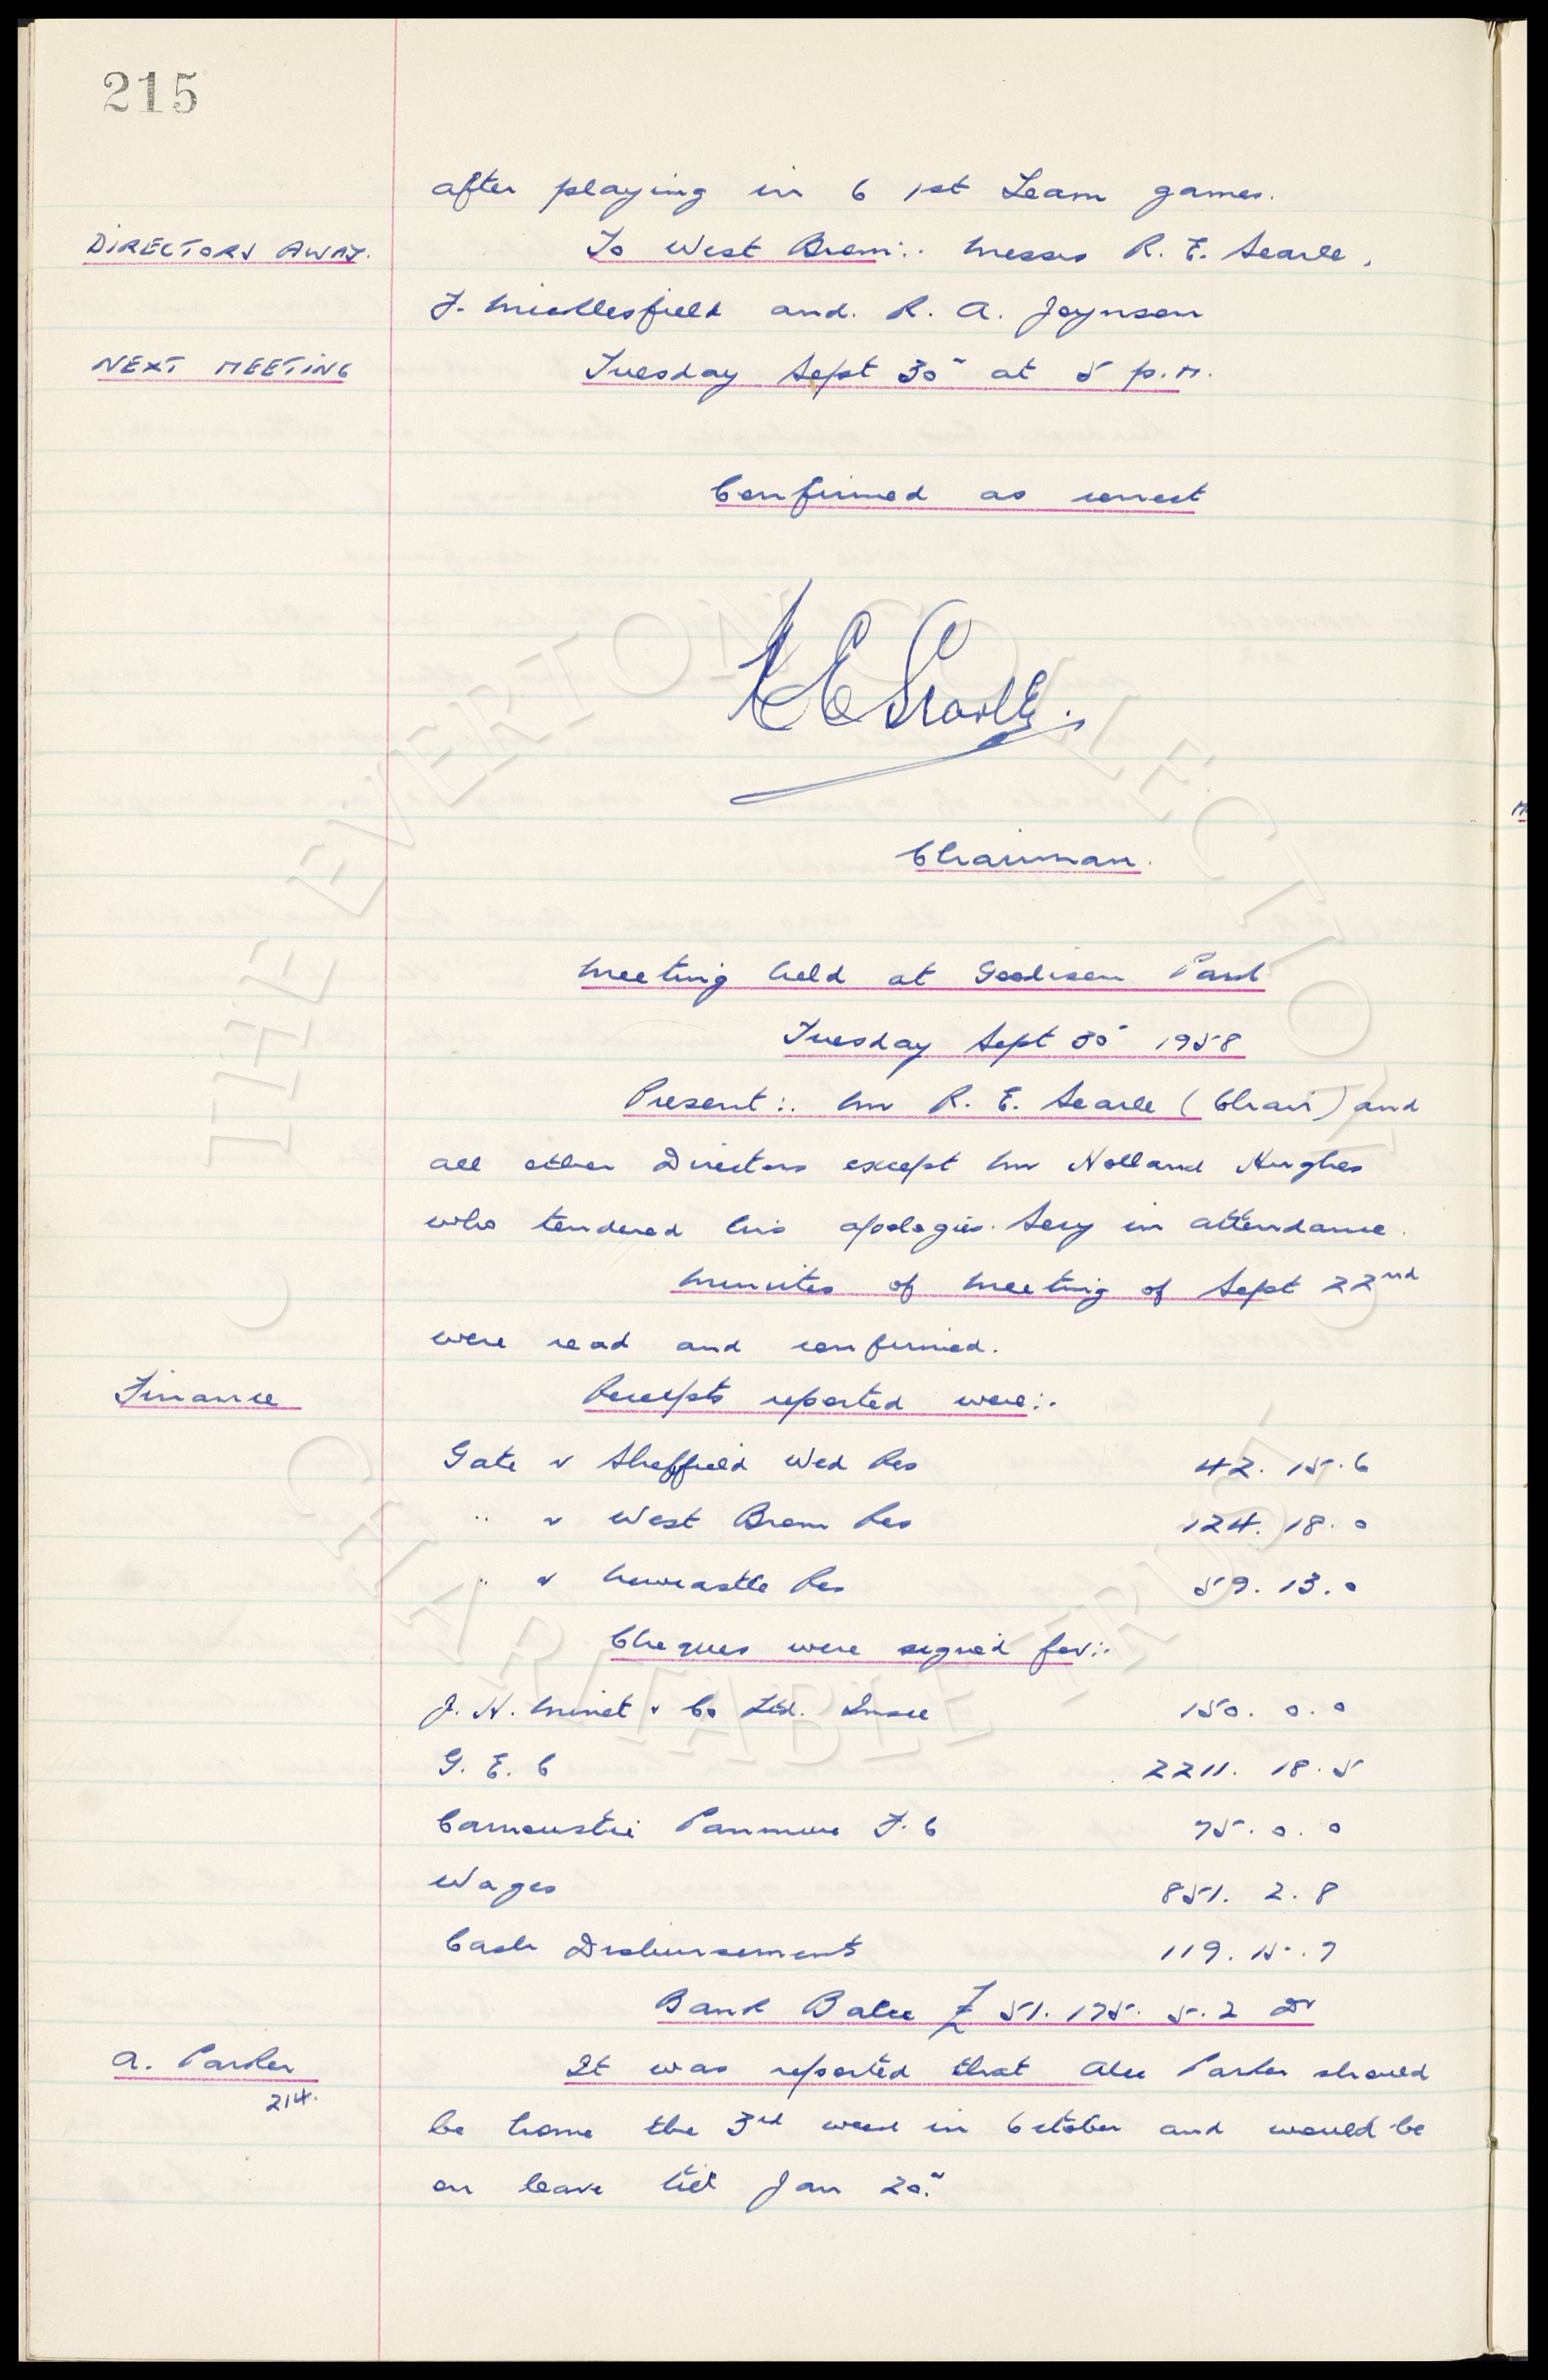 215
after playing in 6 1st Team games.
DIRECTORS AWAY. To West Brom:. Messrs R. E. Searle,
F. Micklesfield and. R. A. Joynson
NEXT MEETING Tuesday Sept 30" at 5 p.m.
Confirmed as correct
R E Searle.
Chairman.
Meeting held at Goodison Park
Tuesday Sept 30" 1958
Present:. Mr R. E. Searle (Chair) and
all other Directors except Mr Holland Hughes
who tendered his apologies. Secy in attendance.
Minutes of Meeting of Sept 22nd
were read and confirmed.
Finance Receipts reported were:.
Gate v Sheffield Wed Res 42. 15. 6
" v West Brom Res 124. 18. 0
" v Newcastle Res 59. 13. 0
Cheques were signed for:.
J. H. Minet & Co Ltd. Insce 150. 0. 0
G. E. C 2211. 18. 5
Carnoustie Panmure F. C 75. 0. 0
Wages 851. 2. 8
Cash Disbursements 119. 15. 7
Bank Balce £ 51. 175. 5. 2 Dr
A. Parker It was reported that Alec Parker should
214.
be home the 3rd week in October and would be
on leave till Jan 20."
© THE EVERTON COLLECTION
CHARITABLE TRUST